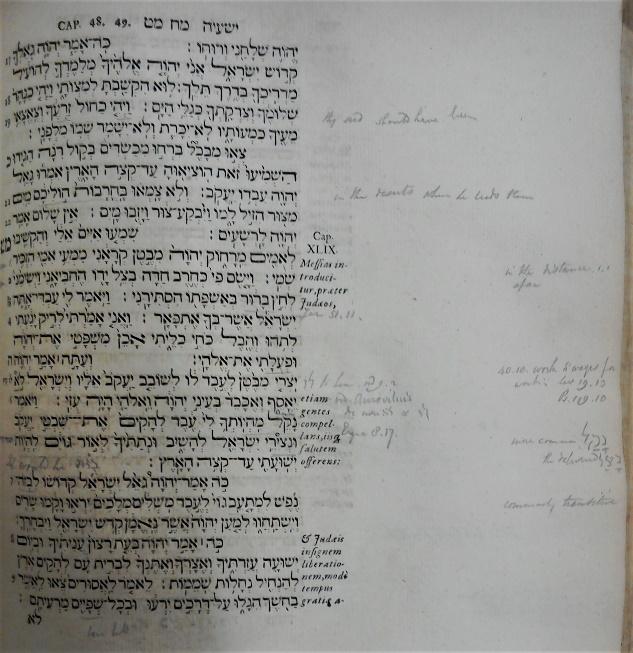 CAP. 48. 49. ישעיה מח מט
יהוה שלחני ורוחו : כה־אמר יהוה גאלך
קדוש ישראל אני יהוה אלהיך מלמדך להועיל
מדריכך בדרך תלך: לוא הקשבת למצותי ויהי כנהר
שלומך וצדקתך כגלי הים : ויהי כחול זרעך וצאצאי
מעיך כמעותיו לא־יכרת ולא־ישמד שמו מלפני :
צאו מבבל ברחו מכשדים בקול רנה הגידו
השמיעו זאת הוציאוה עד־קצה הארץ אמרו גאל
יהוה עבדו יעקב: ולא צמאו בחרבות הוליכם מים
מצור הזיל למו ויבקע־צור ויזבו מים : אין שלום אמר
יהוה לרשעים : שמעו איים אלי והקשיבו
לאמים מרחוק יהוה מבטן קראני ממעי אמי הזכיר
שמי : וישם פי כחרב חדה בצל ידו החביאני וישימני
לחץ ברור באשפתו הסתירני: ויאמר לי עבדי־אתה
ישראל אשר־בך אתפאר: ואני אמרתי לריק יגעתי
לתהו והבל כחי כליתי אכן משפטי את־יהוה
ופעלתי את־אלהי: ועתה אמר יהוה
יצרי מבטן לעבד לו לשובב יעקב אליו וישראל לא
יאסף ואכבד בעיני יהוה ואלהי היה עזי : ויאמר
נקל מהיותך לי עבד להקים את־שבטי יעקב
ונצירי ישראל להשיב ונתתיך לאור גוים להיות
ישועתי עד־קצה הארץ :
כה אמר־יהוה גאל ישראל קדושו לבזה־
נפש למתעב גוי לעבד משלים מלכים יראו וקמו שרים
וישתחוו למען יהוה אשר נאמן קדש ישראל ויבחרך:
כה אמר יהוה בעת רצון עניתיך וביום
ישועה עזרתיך ואצרך ואתנך לברית עם להקים ארץ
להנחיל נחלות שממות : לאמר לאסורים צאו לאשר
בחשך הגלו על־דרכים ירעו ובכל־שפיים מרעיתם :
לא
Cap.
XLIX.
Messias in-
troduci-
tur, præter
Judæos,
etiam
gentes
compel-
lans, iisq;
salutem
offerens:
& Judæis
insignem
liberatio-
nem, modò
tempus
gratiæ a-
thy seed should have been
in the deserts when he leads them
in the distance
afar
40.10. work & wages for
work: Lev 19.13
Ps. 109.10
more common
the
commonly transitive